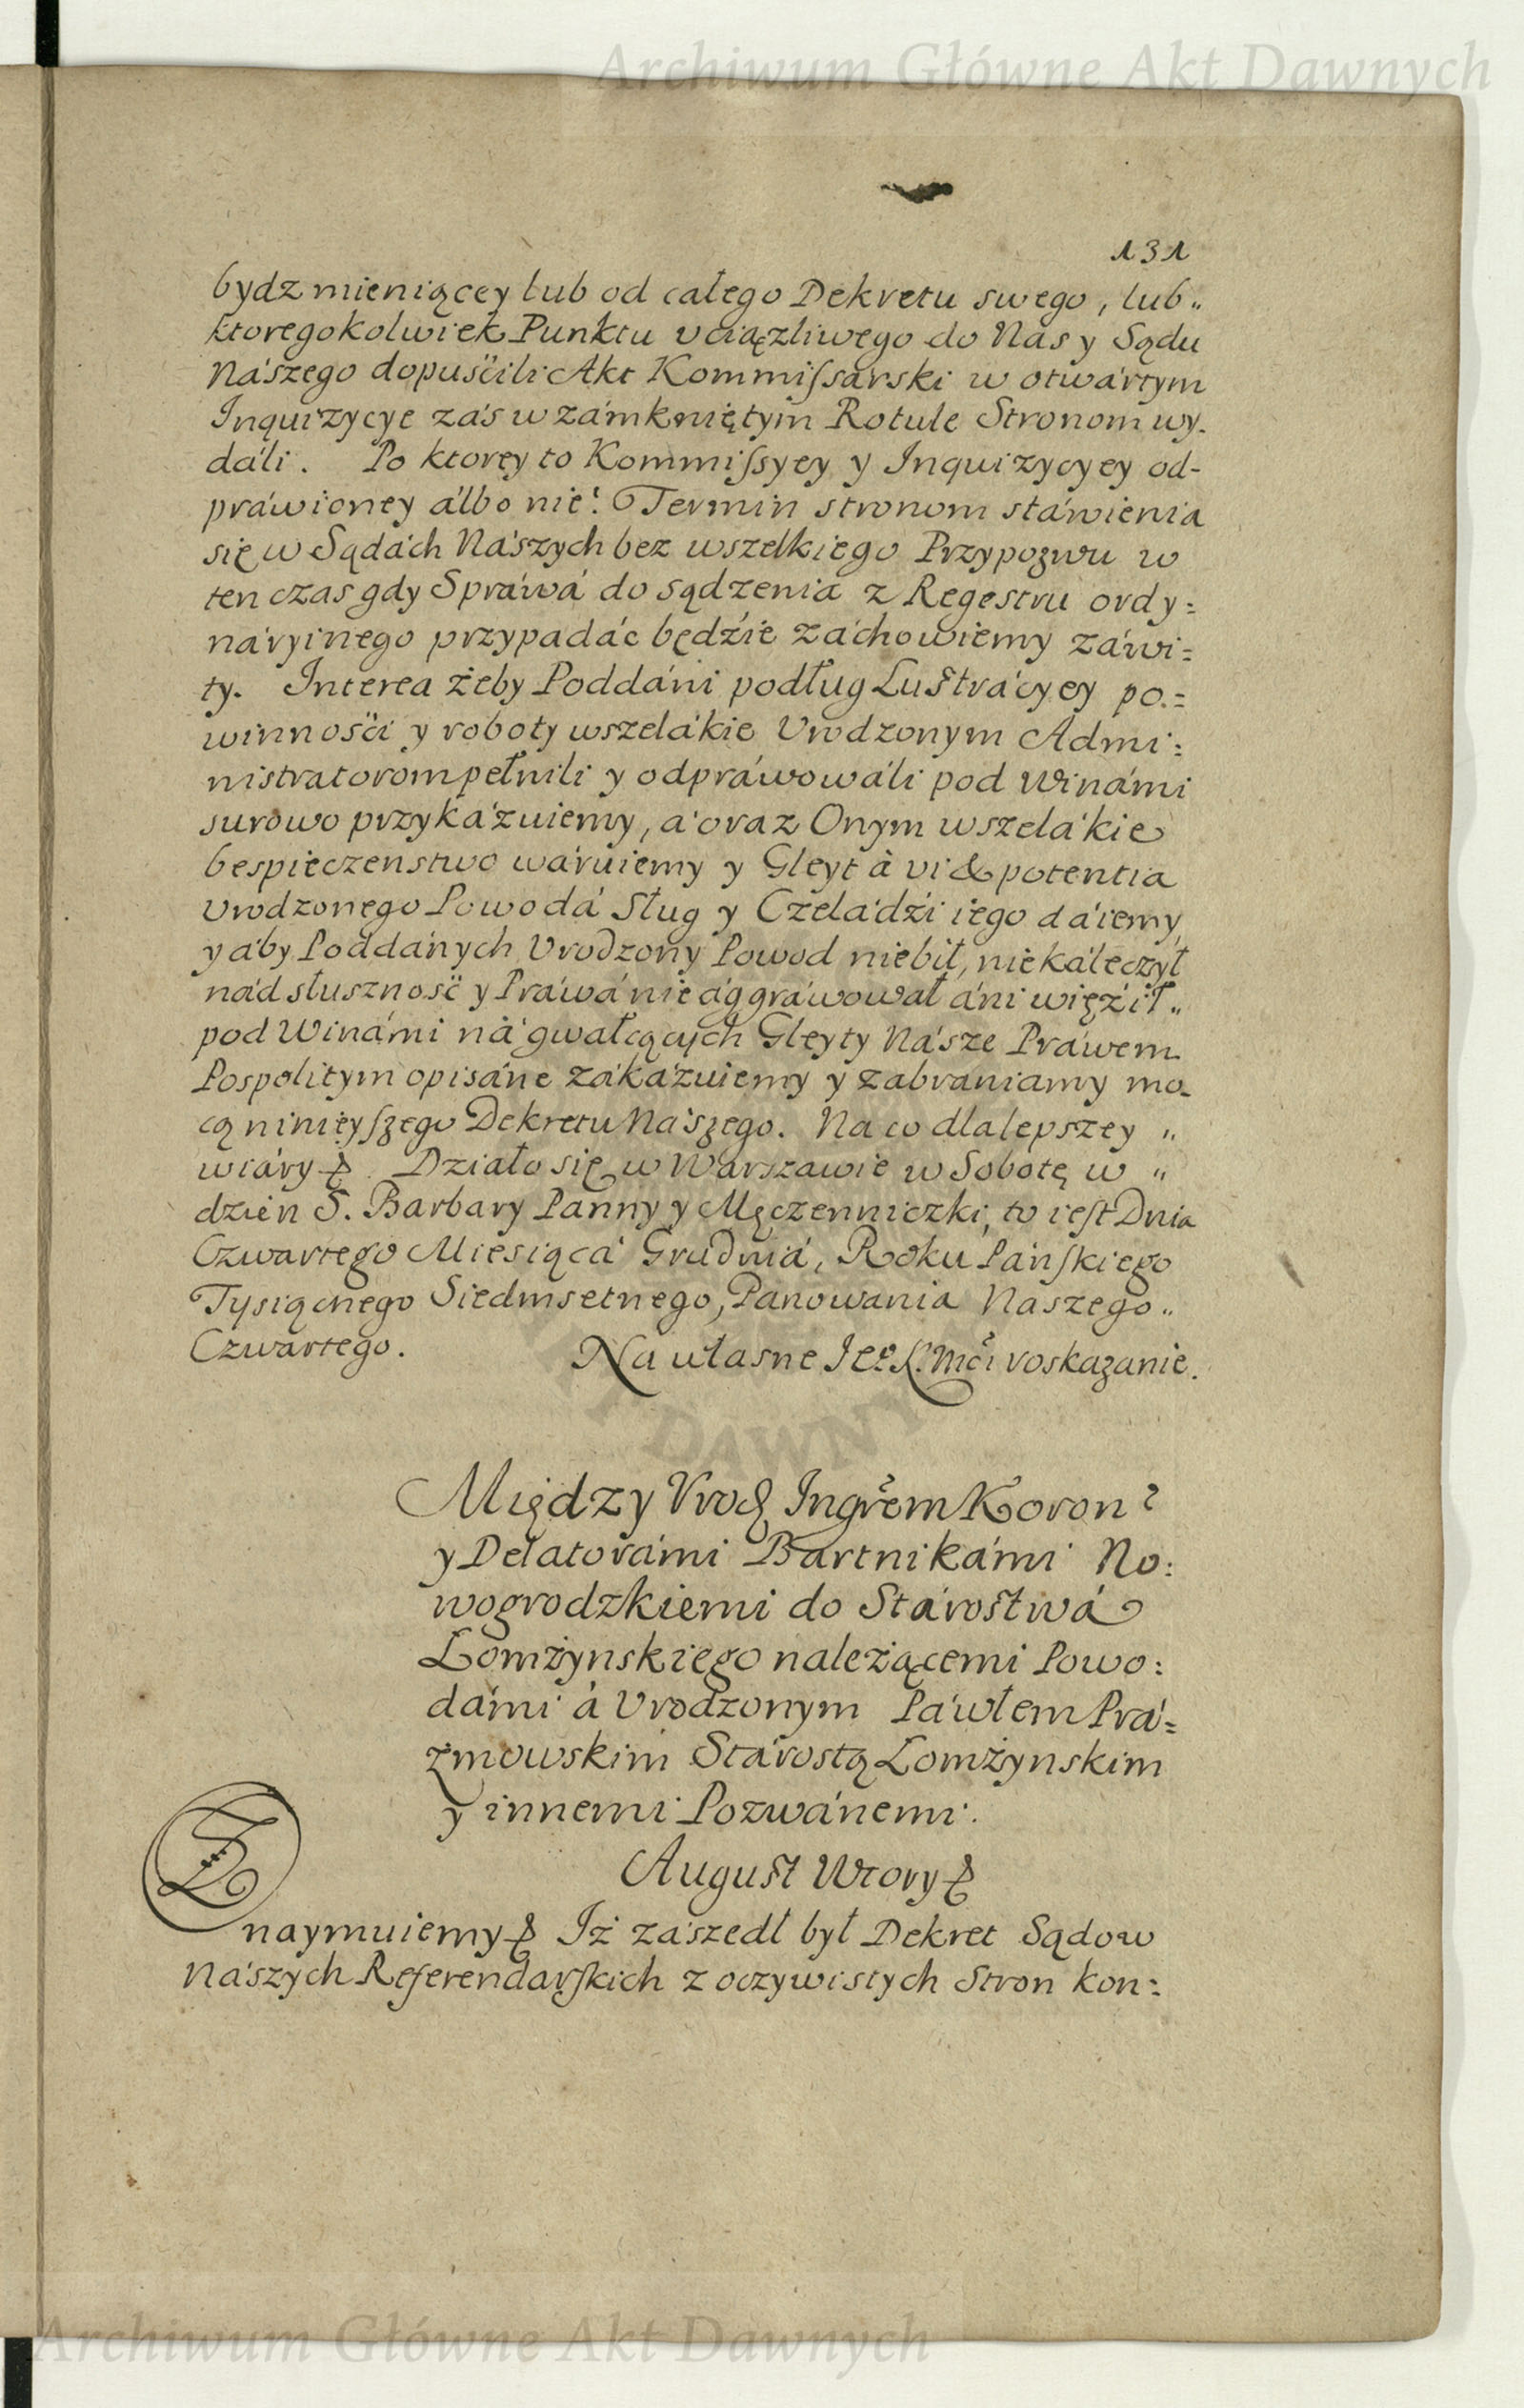 Archiwum Główne Akt Dawnych
131
bydz mieniącey lub od całego Dekretu swego, lub„
ktoregokolwiek Punktu vciążliwego do Nas y Sądu
Nászego dopuśćili Akt Kommiſsárski w otwártym
Inquizycye zás w zámkniętym Rotule Stronom wy-
dáli. Po ktorey to Kommiſsyey y Inquizycyey od-
práwioney álbo nie: Termin stronom stáwienia
się w Sądách Nászych bez wszelkiego Przypozwu w
ten czas gdy Spráwá do sądzenia z Regestru ordy=
náryinego przypadáć będźie záchowiemy záwi=
ty. Interea żeby Poddáni podług Lustrácyey po=
winnośći y roboty wszelákie Vrodzonym Admi=
nistratorom pełnili y odpráwowáli pod Winámi
surowo przykázuiemy, á oraz Onym wszelákie
bespieczenstwo wáruiemy y Gleyt à vi & potentia
Vrodzonego Powodá Sług y Czeládźi iego dáiemy
y áby Poddánych Vrodzony Powod niebił, niekáleczył
nád słuszność y Práwá nie ággráwował áni więźił„
pod Winámi ná gwałcących Gleyty Násze Práwem
Pospolitym opisáne zákázuiemy y zabraniamy mo-
cą ninieyſzego Dekretu Nászego. Na co dla lepszey „
wiáry &. Działo się w Warszawie w Sobotę w „
dzien S. Barbary Panny y Męczenniczki, to iest Dnia
Czwartego Miesiącá Grudniá, Roku Páńſkiego
Tysiącnego Siedmsetnego, Panowania Naszego„
Czwartego.
Na własne Jeº K. Mći roskazanie.
DAWNY
Między Vrod Ingrem Koron
y Delatorámi Bartnikámi No=
wogrodzkiemi do Stárostwá
Łomżynskiego należącemi Powo=
dámi á Vrodzonym Páwłem Prá=
zmowskim Stárostą Łomżynskim
y innemi Pozwánemi.
August Wtory &
Znaymuiemy & Iż zászedł był Dekret Sądow
Nászych Referendarſkich z oczywistych Stron kon=
Archiwum Główne Akt Dawnych